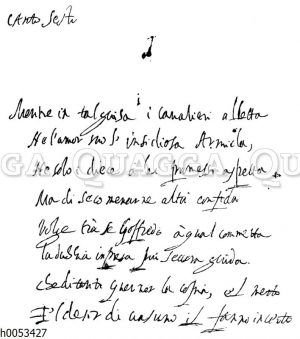 Canto Sesto
Mentre in tal guisa i cavalieri alletta
Nel'amor suo l'insidiosa Armida,
Ne solo i diece a lei promessi aspetta
Ma di seco menarne altri confida
Volge tra se Goffredo a qual commetta
La dubbia impresa guida.
la copia, e'l merto
E'l desir di ciascuno il fanno incerto
QUAGGA QUAGGA
h0053427